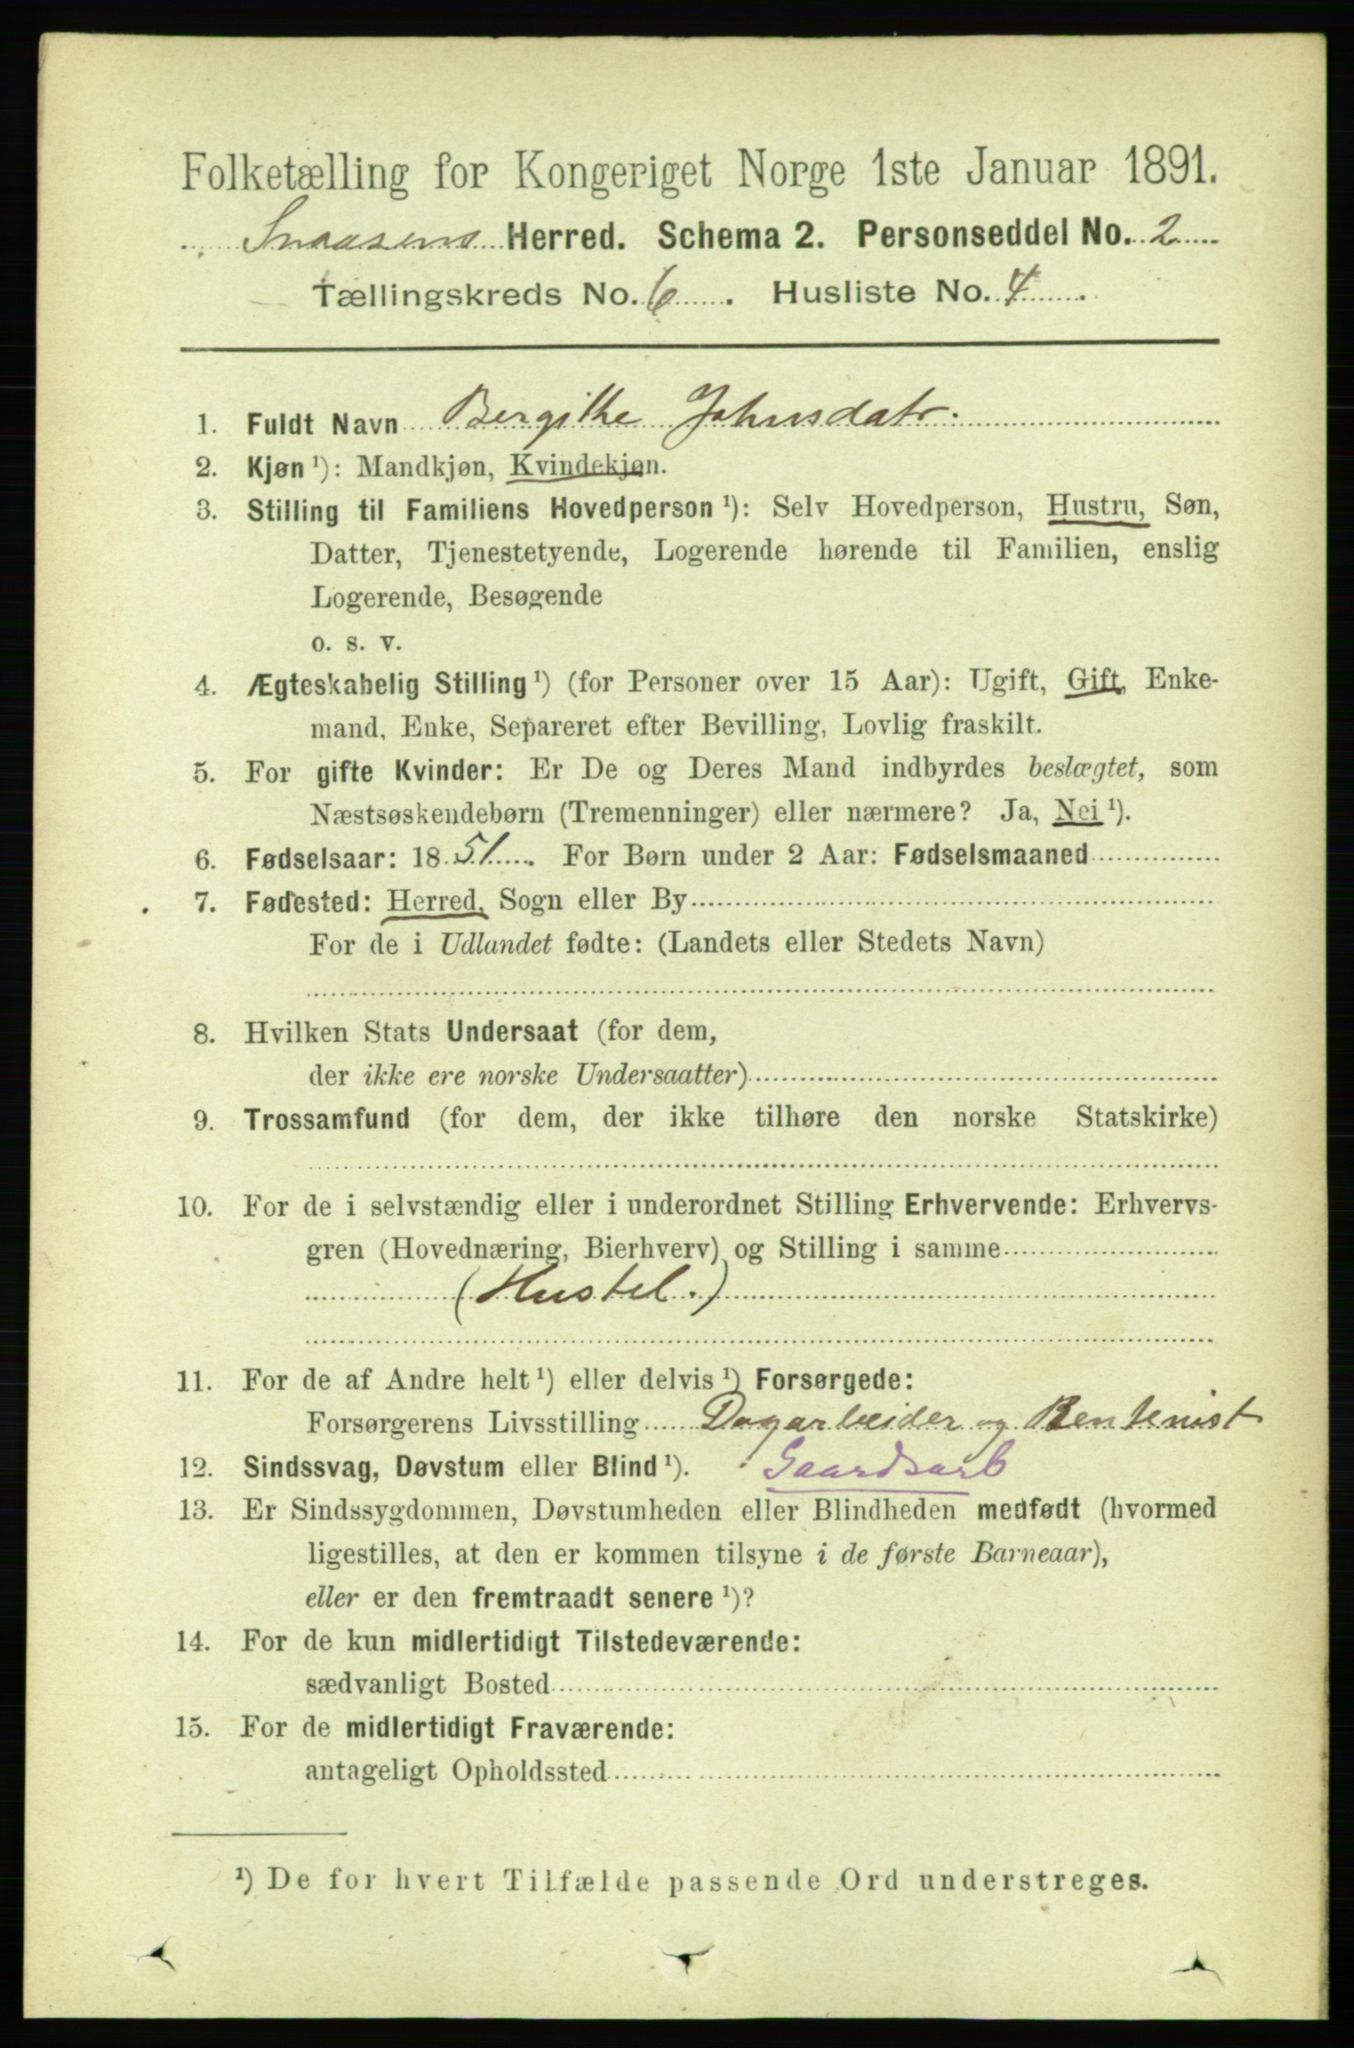 Folketælling for Kongeriget Norge 1ste Januar 1891.
Snaasens Herred. Schema 2. Personseddel No. 2
Tællingskreds No. 6. Husliste No. 4.
1. Fuldt Navn Bergithe Johnsdatr.
2. Kjøn ¹): Mandkjøn, Kvindekjøn.
3. Stilling til Familiens Hovedperson ¹): Selv Hovedperson, Hustru, Søn,
Datter, Tjenestetyende, Logerende hørende til Familien, enslig
Logerende, Besøgende
o. s. v.
4. Ægteskabelig Stilling ¹) (for Personer over 15 Aar): Ugift, Gift, Enke-
mand, Enke, Separeret efter Bevilling, Lovlig fraskilt.
5. For gifte Kvinder: Er De og Deres Mand indbyrdes beslægtet, som
Næstsøskendebørn (Tremenninger) eller nærmere? Ja, Nei ¹).
6. Fødselsaar: 1851. For Børn under 2 Aar: Fødselsmaaned
7. Fødested: Herred, Sogn eller By
For de i Udlandet fødte: (Landets eller Stedets Navn)
8. Hvilken Stats Undersaat (for dem,
der ikke ere norske Undersaatter)
9. Trossamfund (for dem, der ikke tilhøre den norske Statskirke)
10. For de i selvstændig eller i underordnet Stilling Erhvervende: Erhvervs-
gren (Hovednæring, Bierhverv) og Stilling i samme
(Hustel.)
11. For de af Andre helt ¹) eller delvis ¹) Forsørgede:
Forsørgerens Livsstilling Dagarbeider og Rentenist
12. Sindssvag, Døvstum eller Blind ¹). Gaardsarb
13. Er Sindssygdommen, Døvstumheden eller Blindheden medfødt (hvormed
ligestilles, at den er kommen tilsyne i de første Barneaar),
eller er den fremtraadt senere ¹)?
14. For de kun midlertidigt Tilstedeværende:
sædvanligt Bosted
15. For de midlertidigt Fraværende:
antageligt Opholdssted
¹) De for hvert Tilfælde passende Ord understreges.